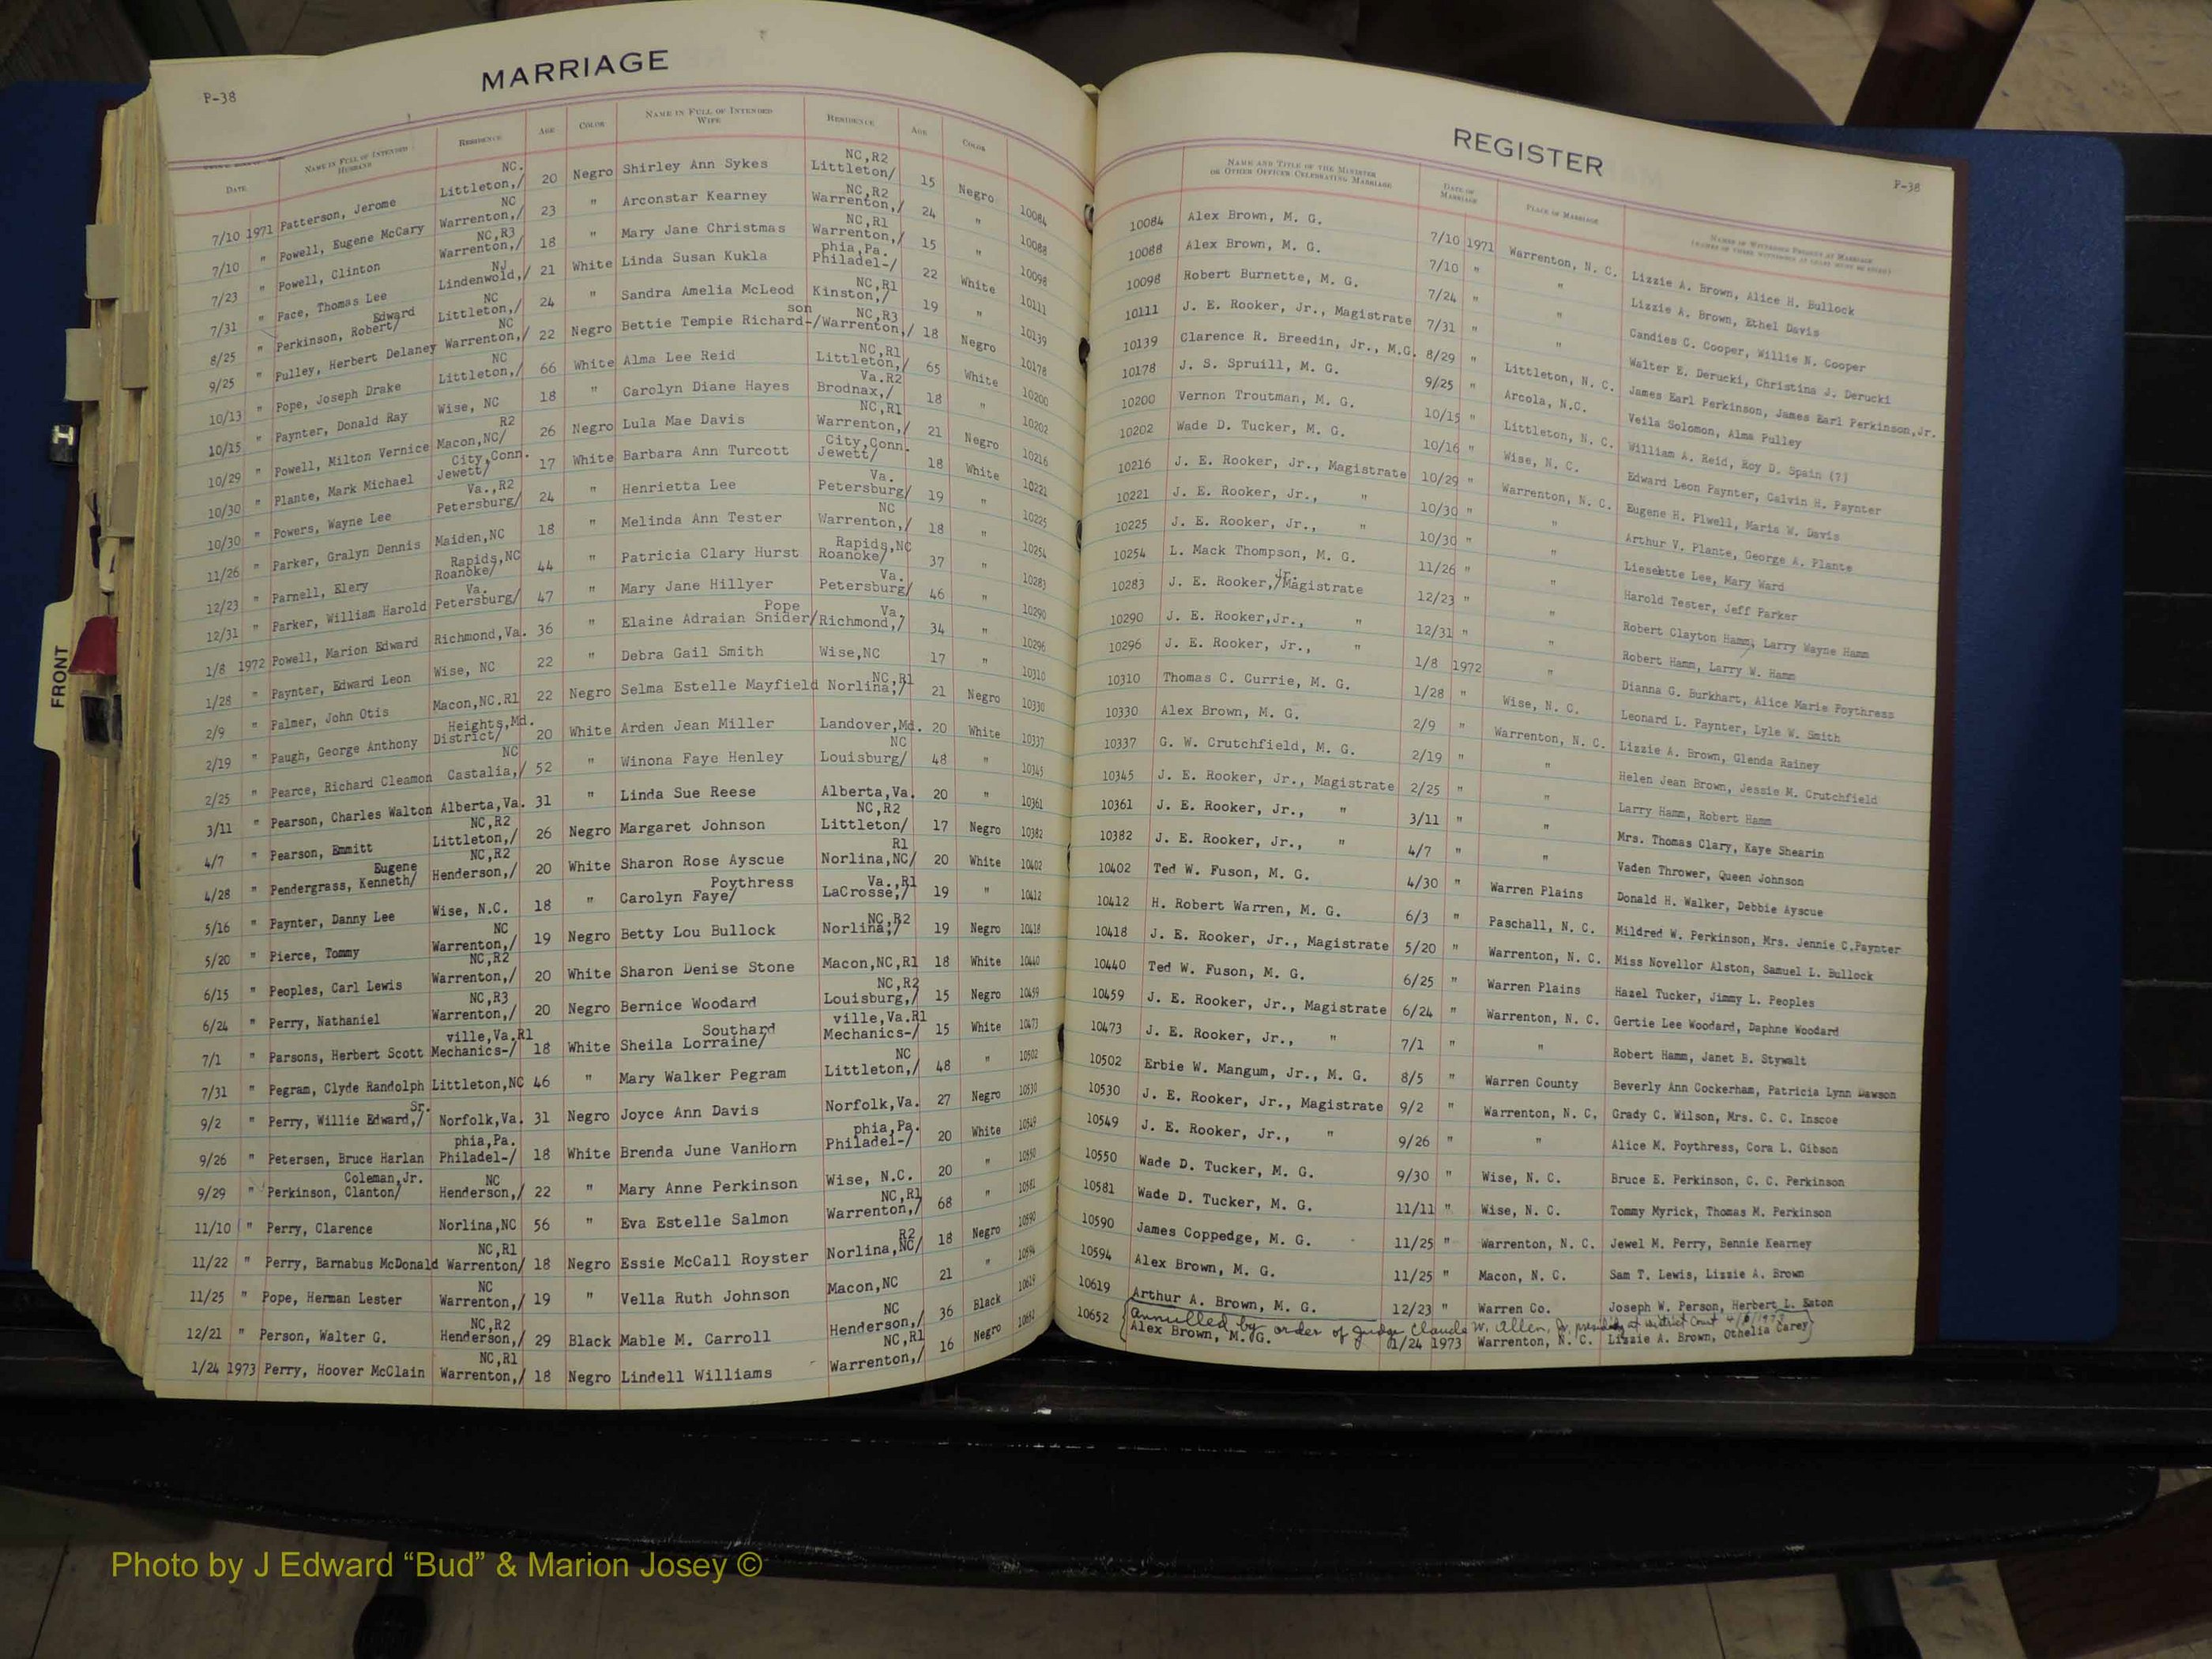 P-38
MARRIAGE
DATE NAME IN FULL OF INTENDED HUSBAND RESIDENCE AGE COLOR NAME IN FULL OF INTENDED WIFE RESIDENCE AGE COLOR
7/10 1971 Patterson, Jerome Littleton,/NC. 20 Negro Shirley Ann Sykes Littleton/NC,R2 15 Negro 10084
7/10 " Powell, Eugene McCary Warrenton,/NC 23 " Arconstar Kearney Warrenton,/NC,R2 24 " 10088
7/23 " Powell, Clinton Warrenton,/NC,R3 18 " Mary Jane Christmas Warrenton,/NC,R1 15 " 10098
7/31 " Pace, Thomas Lee Lindenwold,/NJ 21 White Linda Susan Kukla Philadel-/phia,Pa. 22 White 10111
8/25 " Perkinson, Robert/Edward Littleton,/NC 24 " Sandra Amelia McLeod Kinston,/NC,R1 19 " 10139
9/25 " Pulley, Herbert Delaney Warrenton,/NC 22 Negro Bettie Tempie Richard-/son Warrenton,/NC,R3 18 Negro 10178
10/13 " Pope, Joseph Drake Littleton,/NC 66 White Alma Lee Reid Littleton,/NC,R1 65 White 10200
10/15 " Paynter, Donald Ray Wise, NC 18 " Carolyn Diane Hayes Brodnax,/Va.R2 18 " 10202
10/29 " Powell, Milton Vernice Macon,NC/R2 26 Negro Lula Mae Davis Warrenton,/NC,R1 21 Negro 10216
10/30 " Plante, Mark Michael Jewett/City,Conn. 17 White Barbara Ann Turcott Jewett/City,Conn. 18 White 10221
10/30 " Powers, Wayne Lee Petersburg/Va.,R2 24 " Henrietta Lee Petersburg/Va. 19 " 10225
11/26 " Parker, Gralyn Dennis Maiden,NC 18 " Melinda Ann Tester Warrenton,/NC 18 " 10254
12/23 " Parnell, Elery Roanoke/Rapids,NC 44 " Patricia Clary Hurst Roanoke/Rapids,NC 37 " 10283
12/31 " Parker, William Harold Petersburg/Va. 47 " Mary Jane Hillyer Petersburg/Va. 46 " 10290
1/8 1972 Powell, Marion Edward Richmond,Va. 36 " Elaine Adraian Snider/Pope Richmond,/Va. 34 " 10296
1/28 " Paynter, Edward Leon Wise, NC 22 " Debra Gail Smith Wise,NC 17 " 10310
2/9 " Palmer, John Otis Macon,NC.R1 22 Negro Selma Estelle Mayfield Norlina,/NC,R1 21 Negro 10330
2/19 " Paugh, George Anthony District/Heights,Md. 20 White Arden Jean Miller Landover,Md. 20 White 10337
2/25 " Pearce, Richard Cleamon Castalia,/NC 52 " Winona Faye Henley Louisburg/NC 48 " 10345
3/11 " Pearson, Charles Walton Alberta,Va. 31 " Linda Sue Reese Alberta,Va. 20 " 10361
4/7 " Pearson, Emmitt Littleton,/NC,R2 26 Negro Margaret Johnson Littleton/NC,R2 17 Negro 10382
4/28 " Pendergrass, Kenneth/Eugene Henderson,/NC,R2 20 White Sharon Rose Ayscue Norlina,NC/R1 20 White 10402
5/16 " Paynter, Danny Lee Wise, N.C. 18 " Carolyn Faye/Poythress LaCrosse,/Va.,R1 19 " 10412
5/20 " Pierce, Tommy Warrenton,/NC 19 Negro Betty Lou Bullock Norlina,/NC,R2 19 Negro 10418
6/15 " Peoples, Carl Lewis Warrenton,/NC,R2 20 White Sharon Denise Stone Macon,NC,R1 18 White 10440
6/24 " Perry, Nathaniel Warrenton,/NC,R3 20 Negro Bernice Woodard Louisburg,/NC,R2 15 Negro 10459
7/1 " Parsons, Herbert Scott Mechanics-/ville,Va.R1 18 White Sheila Lorraine/Southard Mechanics-/ville,Va.R1 15 White 10473
7/31 " Pegram, Clyde Randolph Littleton,NC 46 " Mary Walker Pegram Littleton,/NC 48 " 10502
9/2 " Perry, Willie Edward,/Sr. Norfolk,Va. 31 Negro Joyce Ann Davis Norfolk,Va. 27 Negro 10530
9/26 " Petersen, Bruce Harlan Philadel-/phia,Pa. 18 White Brenda June VanHorn Philadel-/phia,Pa. 20 White 10549
9/29 " Perkinson, Clanton/Coleman,Jr. Henderson,/NC 22 " Mary Anne Perkinson Wise, N.C. 20 " 10550
11/10 " Perry, Clarence Norlina,NC 56 " Eva Estelle Salmon Warrenton,/NC,R1 68 " 10581
11/22 " Perry, Barnabus McDonald Warrenton/NC,R1 18 Negro Essie McCall Royster Norlina,NC/R2 18 Negro 10590
11/25 " Pope, Herman Lester Warrenton,/NC 19 " Vella Ruth Johnson Macon,NC 21 " 10594
12/21 " Person, Walter G. Henderson,/NC,R2 29 Black Mable M. Carroll Henderson,/NC 36 Black 10619
1/24 1973 Perry, Hoover McClain Warrenton,/NC,R1 18 Negro Lindell Williams Warrenton,/NC,R1 16 Negro 10652
REGISTER
P-38
NAME AND TITLE OF THE MINISTER OR OTHER OFFICER CELEBRATING MARRIAGE DATE OF MARRIAGE PLACE OF MARRIAGE NAMES OF WITNESSES PRESENT AT MARRIAGE
10084 Alex Brown, M. G. 7/10 1971 Warrenton, N. C. Lizzie A. Brown, Alice H. Bullock
10088 Alex Brown, M. G. 7/10 " " Lizzie A. Brown, Ethel Davis
10098 Robert Burnette, M. G. 7/24 " " Candies C. Cooper, Willie N. Cooper
10111 J. E. Rooker, Jr., Magistrate 7/31 " " Walter E. Derucki, Christina J. Derucki
10139 Clarence R. Breedin, Jr., M.G. 8/29 " Littleton, N. C. James Earl Perkinson, James Earl Perkinson,Jr.
10178 J. S. Spruill, M. G. 9/25 " Arcola, N.C. Veila Solomon, Alma Pulley
10200 Vernon Troutman, M. G. 10/15 " Littleton, N. C. William A. Reid, Roy D. Spain (?)
10202 Wade D. Tucker, M. G. 10/16 " Wise, N. C. Edward Leon Paynter, Calvin H. Paynter
10216 J. E. Rooker, Jr., Magistrate 10/29 " Warrenton, N. C. Eugene H. Plwell, Maria W. Davis
10221 J. E. Rooker, Jr., " 10/30 " " Arthur V. Plante, George A. Plante
10225 J. E. Rooker, Jr., " 10/30 " " Lieselette Lee, Mary Ward
10254 L. Mack Thompson, M. G. 11/26 " " Harold Tester, Jeff Parker
10283 J. E. Rooker,/Jr. Magistrate 12/23 " " Robert Clayton Hamm, Larry Wayne Hamm
10290 J. E. Rooker,Jr., " 12/31 " " Robert Hamm, Larry W. Hamm
10296 J. E. Rooker, Jr., " 1/8 1972 " Dianna G. Burkhart, Alice Marie Poythress
10310 Thomas C. Currie, M. G. 1/28 " Wise, N. C. Leonard L. Paynter, Lyle W. Smith
10330 Alex Brown, M. G. 2/9 " Warrenton, N. C. Lizzie A. Brown, Glenda Rainey
10337 G. W. Crutchfield, M. G. 2/19 " " Helen Jean Brown, Jessie M. Crutchfield
10345 J. E. Rooker, Jr., Magistrate 2/25 " " Larry Hamm, Robert Hamm
10361 J. E. Rooker, Jr., " 3/11 " " Mrs. Thomas Clary, Kaye Shearin
10382 J. E. Rooker, Jr., " 4/7 " " Vaden Thrower, Queen Johnson
10402 Ted W. Fuson, M. G. 4/30 " Warren Plains Donald H. Walker, Debbie Ayscue
10412 H. Robert Warren, M. G. 6/3 " Paschall, N. C. Mildred W. Perkinson, Mrs. Jennie C.Paynter
10418 J. E. Rooker, Jr., Magistrate 5/20 " Warrenton, N. C. Miss Novellor Alston, Samuel L. Bullock
10440 Ted W. Fuson, M. G. 6/25 " Warren Plains Hazel Tucker, Jimmy L. Peoples
10459 J. E. Rooker, Jr., Magistrate 6/24 " Warrenton, N. C. Gertie Lee Woodard, Daphne Woodard
10473 J. E. Rooker, Jr., " 7/1 " " Robert Hamm, Janet B. Stywalt
10502 Erbie W. Mangum, Jr., M. G. 8/5 " Warren County Beverly Ann Cockerham, Patricia Lynn Dawson
10530 J. E. Rooker, Jr., Magistrate 9/2 " Warrenton, N. C, Grady C. Wilson, Mrs. C. C. Inscoe
10549 J. E. Rooker, Jr., " 9/26 " " Alice M. Poythress, Cora L. Gibson
10550 Wade D. Tucker, M. G. 9/30 " Wise, N. C. Bruce E. Perkinson, C. C. Perkinson
10581 Wade D. Tucker, M. G. 11/11 " Wise, N. C. Tommy Myrick, Thomas M. Perkinson
10590 James Coppedge, M. G. 11/25 " Warrenton, N. C. Jewel M. Perry, Bennie Kearney
10594 Alex Brown, M. G. 11/25 " Macon, N. C. Sam T. Lewis, Lizzie A. Brown
10619 Arthur A. Brown, M. G. 12/23 " Warren Co. Joseph W. Person, Herbert L. Eaton
Annulled by order of Judge Claude W. Allen, Jr. presiding at District Court
10652 Alex Brown, M. G. 1/24 1973 Warrenton, N. C. Lizzie A. Brown, Othelia Carey
FRONT
Photo by J Edward “Bud” & Marion Josey ©